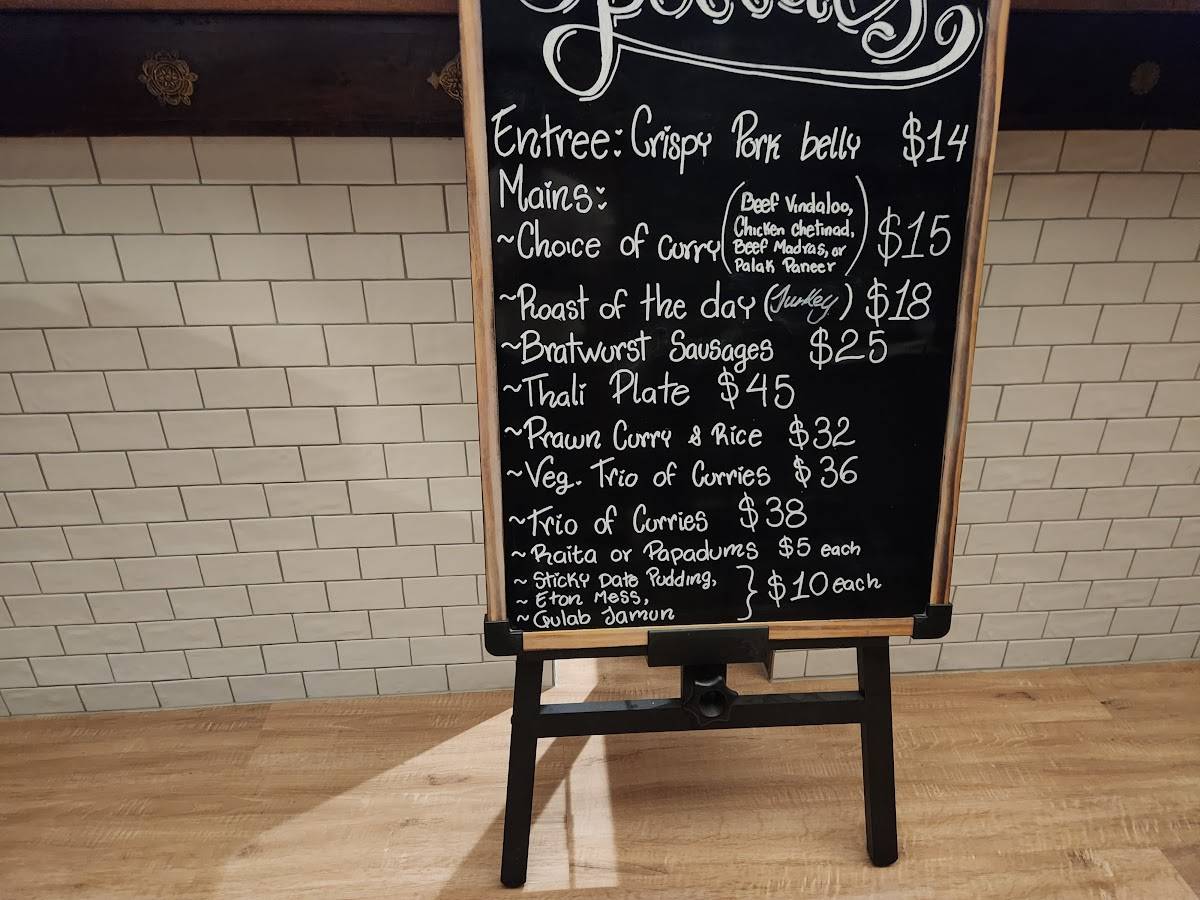 Specials
Entree: Crispy Pork belly $14
Mains:
~Choice of curry (Beef Vindaloo, Chicken Chetinad, Beef Madras, or Palak Paneer) $15
~Roast of the day (Turkey) $18
~Bratwurst Sausages $25
~Thali Plate $45
~Prawn Curry & Rice $32
~Veg. Trio of Curries $36
~Trio of Curries $38
~Raita or Papadums $5 each
~ Sticky Date Pudding,
~ Eton Mess,
~ Gulab Jamun } $10 each